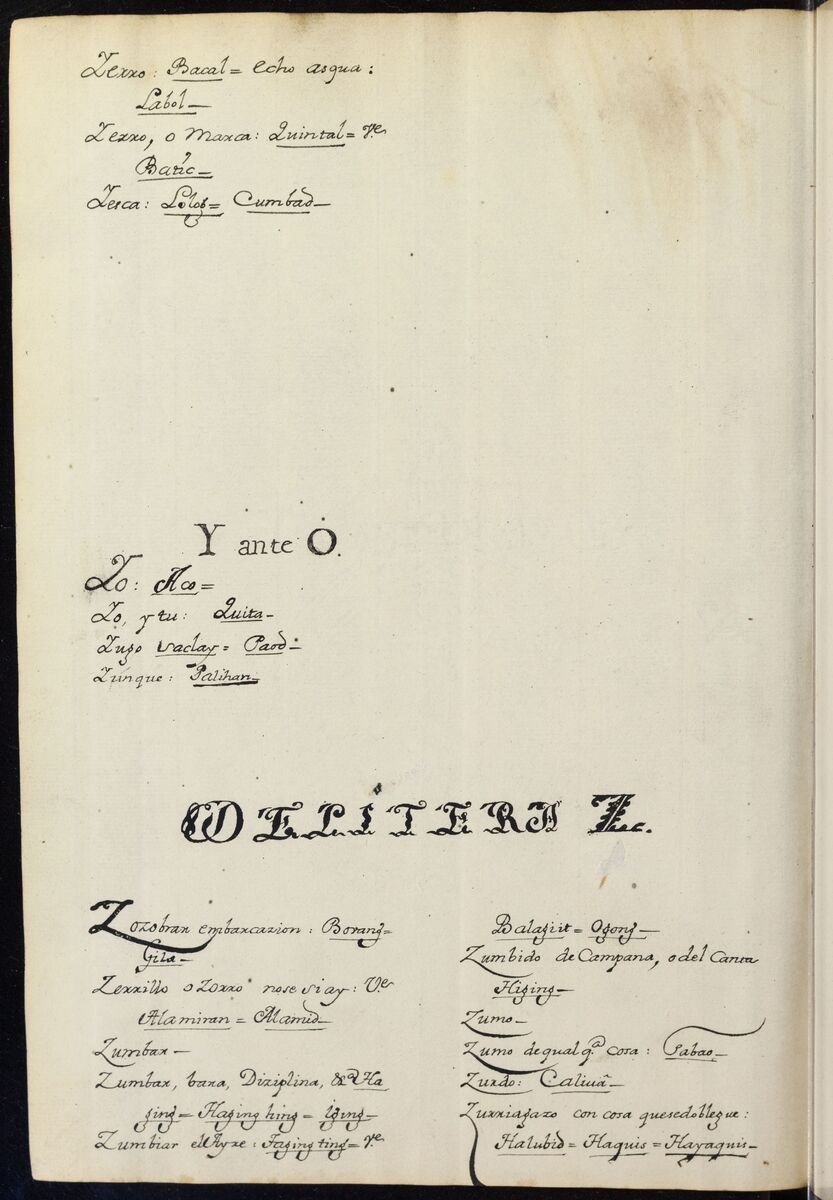 Yerro: Bacal= echo asgua:
Labol_
Yerro, o Marca: Quintal= Ve
Batic_
Yesca: Lolog= Cumbad_
Y ante O.
Yo: Aco=
Yo, y tu: Quita_
Yugo vaclay= Paod_
Yunque: Palihan_
DE LITERA Z.
Zozobrar embarcazion: Borang=
Gila_
Zerrillo o Zorro nose si ay: Ve
Alamiran= Alamid_
Zumbar_
Zumbar, bara, Diziplina, &a Ha
ging= Haging hing= iging_
Zumbiar ell Ayre: Taging ting= Ve
Balagiit= Ogong_
Zumbido de Campana, o del Canta
Higing_
Zumo_
Zumo de qual qa cosa: Tabao_
Zurdo: Caliua_
Zurriagazo con cosa quesedoblegue:
Halubid= Haquis= Hayaquis_